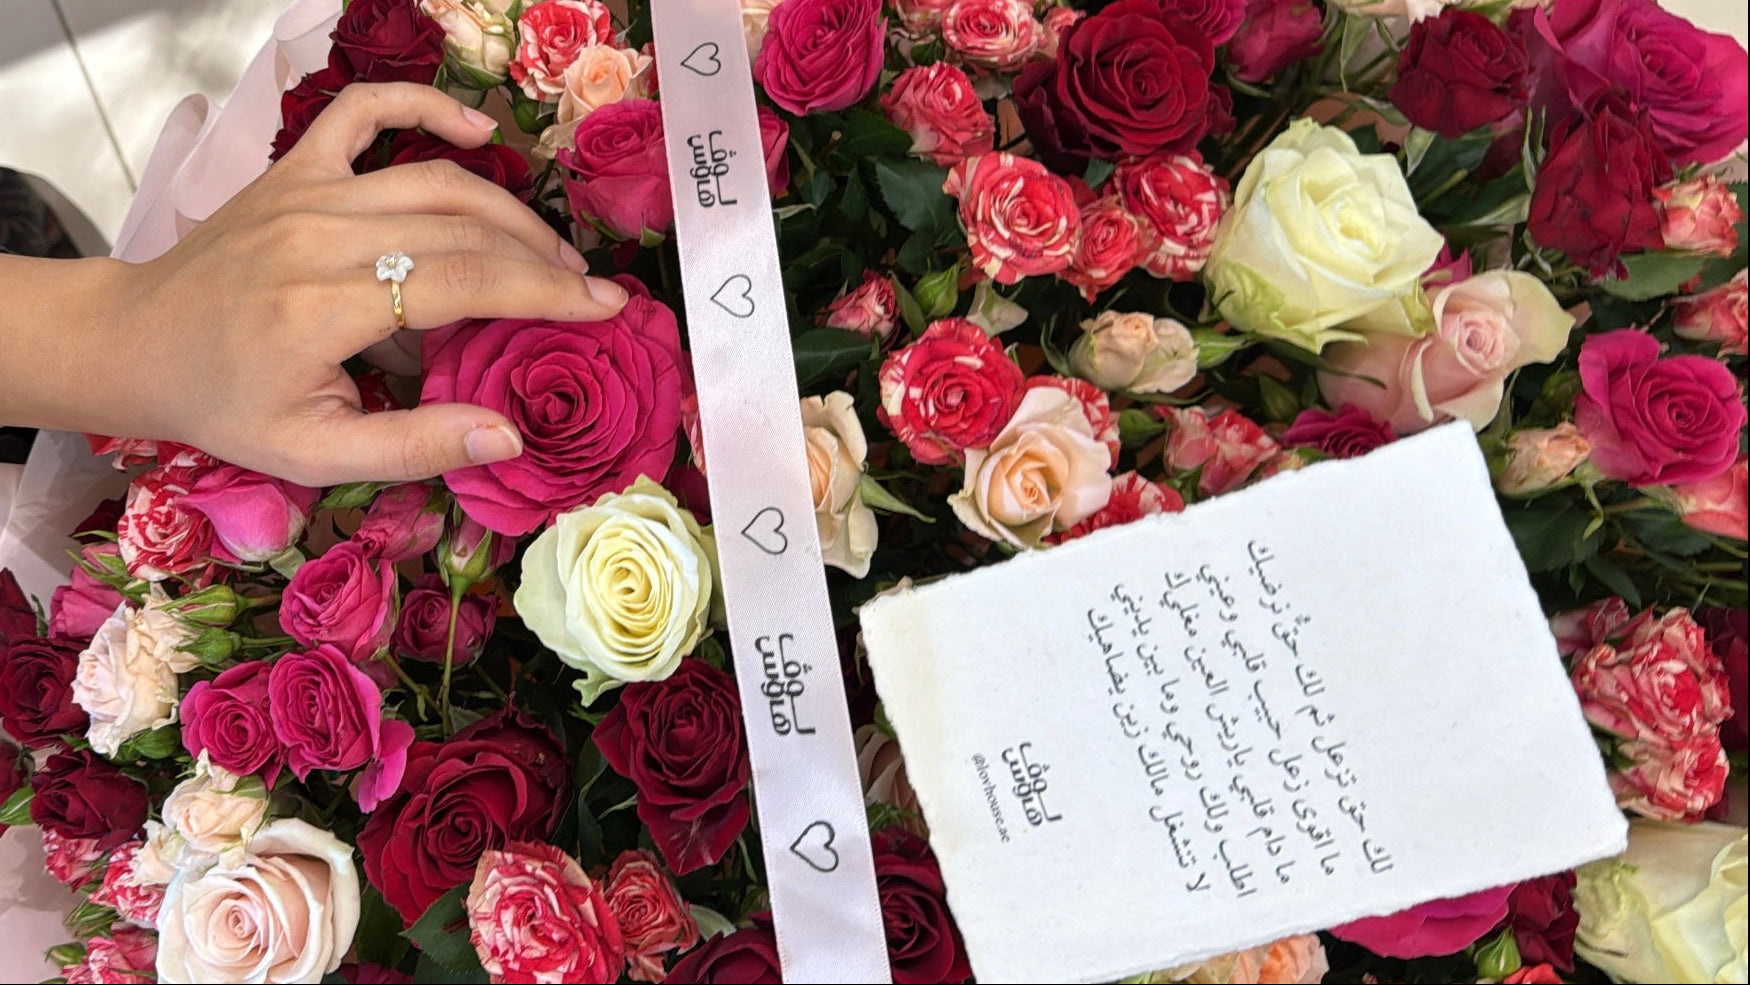 لوف
هاوس
لوف
هاوس
لك حق تزعل ثم لك حق نرضيك
ما اقوى زعل حبيب قلبي وعيني
ما دام قلبي ياريش العين مغليك
اطلب ولك روحي وما بين يديني
لا تنشغل مالك زين يضاهيك
لوف
هاوس
@lovhouse.ae